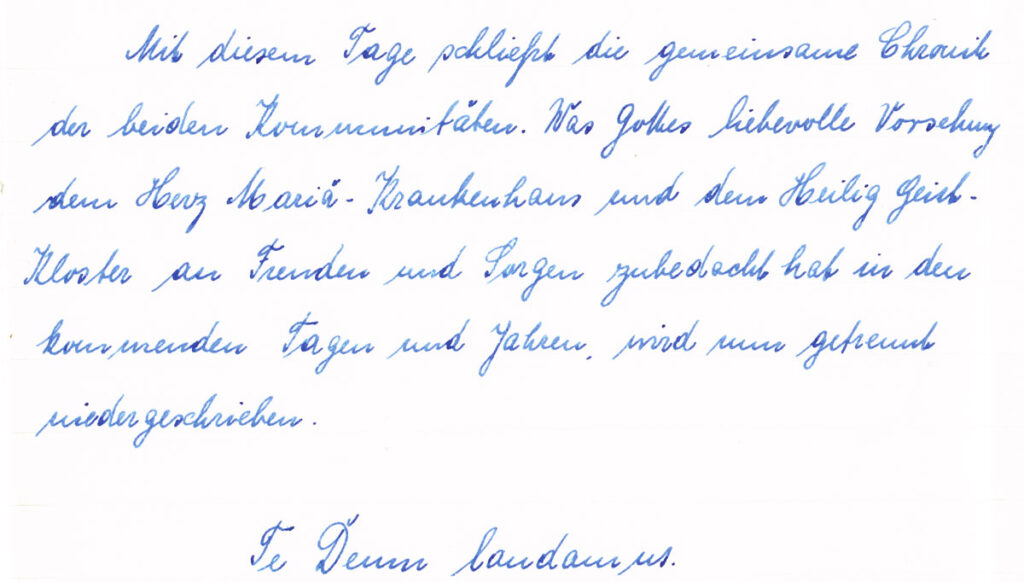 Mit diesem Tage schließt die gemeinsame Chronik
der beiden Kommunitäten. Was Gottes liebevolle Vorsehung
dem Herz Mariä-Krankenhaus und dem Heilig Geist-
Kloster an Freuden und Sorgen zubedacht hat in den
kommenden Tagen und Jahren, wird nun getrennt
niedergeschrieben.
Te Deum laudamus.